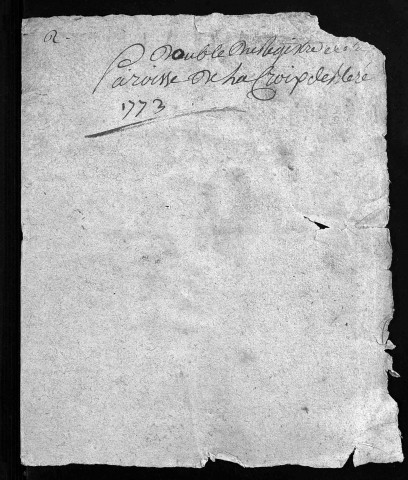 Double du Registre de la
Paroisse de La Croix de Bléré
1773